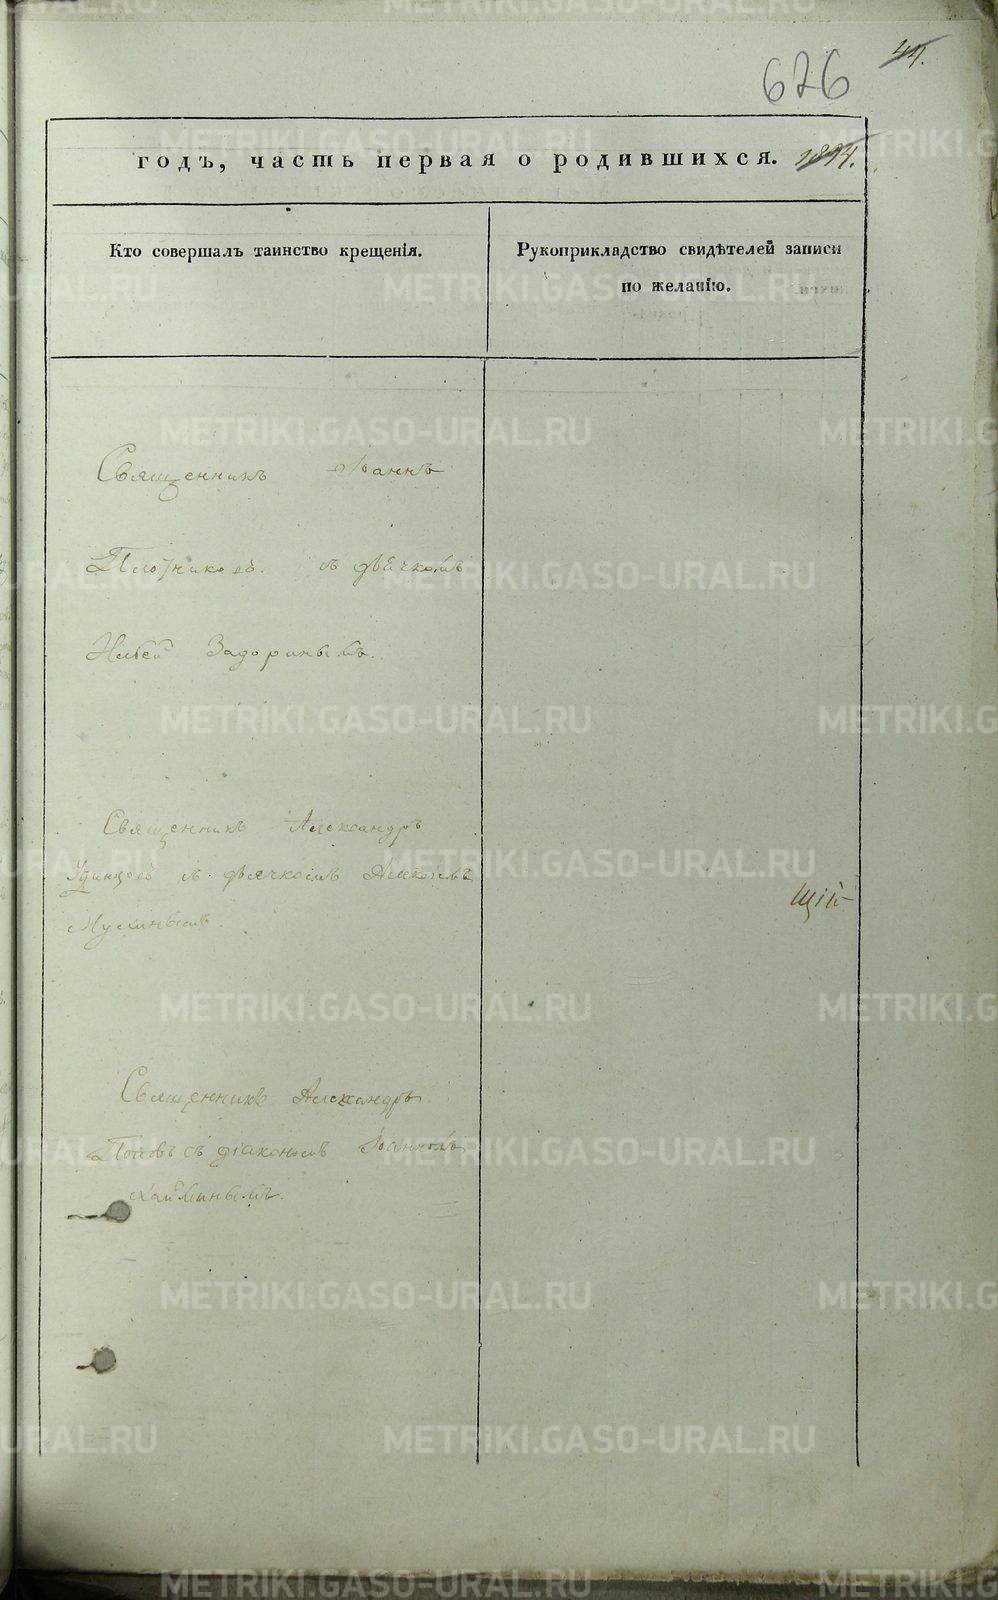 44.
626
годъ, часть первая о родившихся.
Кто совершалъ таинство крещенія.
Рукоприкладство свидѣтелей записи
по желанію.
Священникъ Іоаннъ
Плотниковъ. съ дьячкомъ
Задоринымъ.
Священникъ Александръ
Удинцовъ съ дьячкомъ
щій
Священникъ Александръ
Поповъ съ діакономъ Іоанномъ
METRIKI.GASO-URAL.RU